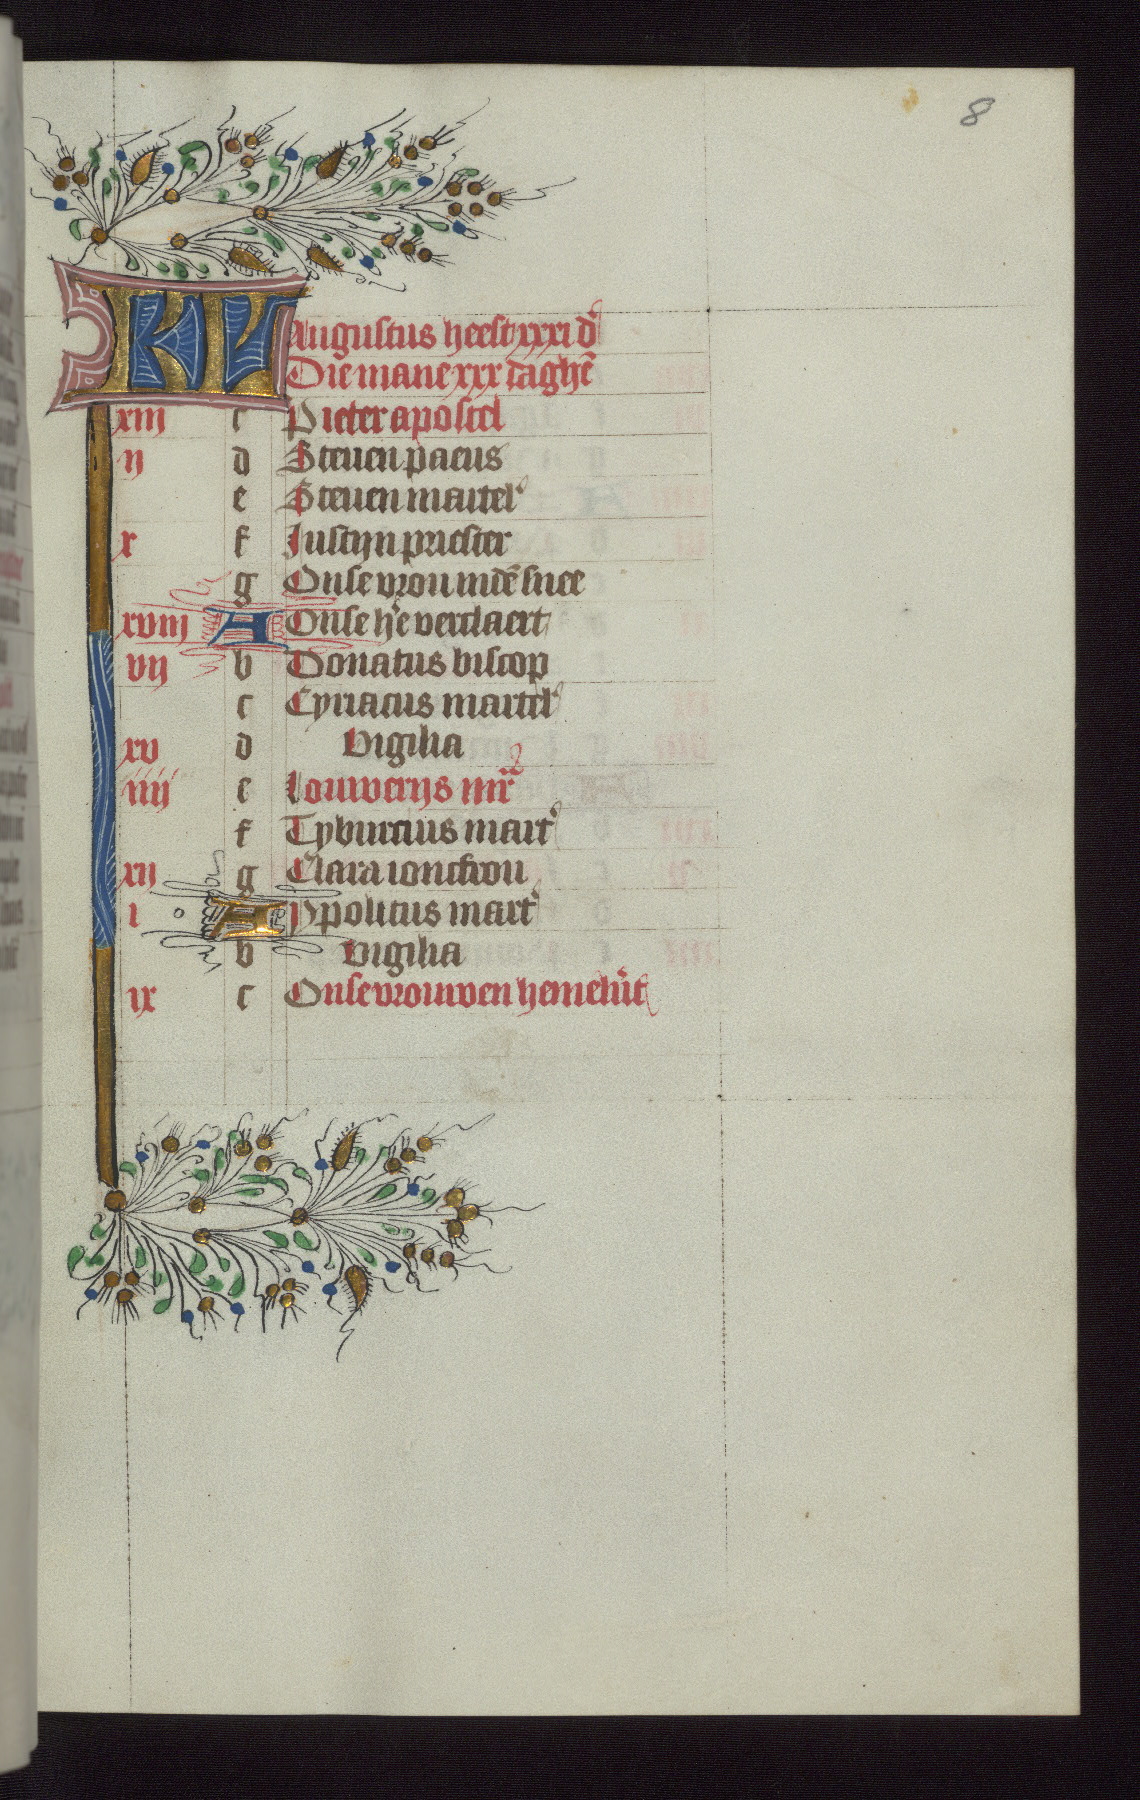 8
KL Augustus heeft xxxi d'
Die mane xxx daghē
xiii c Pieter apostel
ii d Steuen paeus
e Steuen martel'
x f Justijn priester
g Onse vrou mdē snee
xviii A Onse hē verclaert
vii b Donatus biscop
c Cyriacus martel'
xv d Vigilia
iiii e Louwerijs mr̄
f Tyburcius mart'
xii g Clara ioncfrou
i A Ypolitus mart'
b Vigilia
ix c Onse vrouwen hemelu't